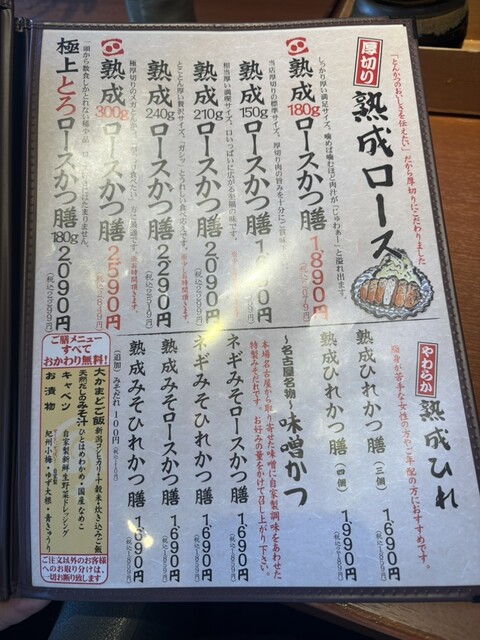 「とんかつのおいしさを伝えたい」だから厚切りにこだわりました。
厚切り
熟成ロース
しっかり厚い満足サイズ。噛めば噛むほど肉汁が「じゅわあ〜」と溢れ出ます。
熟成180gロースかつ膳 1,890円
当店厚切りの標準サイズ。厚切り肉の旨みを十分に
熟成150gロースかつ膳
相当厚い満喫サイズ。口いっぱいに広がる至福の味です。
熟成210gロースかつ膳 2,090円
とことん厚い贅沢サイズ。「ガシッ」とうれしい食べ応えです。
熟成240gロースかつ膳 2,290円
熟成300gロースかつ膳 2,590円
一頭から数食しかとれない稀少品。
極上とろロースかつ膳 180g 2,090円
やわらか
熟成ひれ
脂身が苦手な女性の方やご年配の方におすすめです。
熟成ひれかつ膳(三個) 1,690円
熟成ひれかつ膳(四個) 1,990円
〜名古屋名物〜味噌かつ
本場名古屋から取り寄せた味噌に自家製調味をあわせた
特製みそだれです。お好みの量をかけて召し上がり下さい。
ネギみそロースかつ膳 1,690円
ネギみそひれかつ膳 1,690円
熟成みそロースかつ膳 1,690円
熟成みそひれかつ膳 1,690円
(追加)みそだれ 100円
ご膳メニュー
すべて
おかわり無料!
大かまどご飯 新潟コシヒカリ・十穀米・炊き込みご飯
天然だしのみそ汁 ひとはめわかめ・国産なめこ
キャベツ 自家製新鮮生野菜ドレッシング
お漬物 紀州小梅・ゆず大根・青きゅうり
ご注文以外のお客様
へのお取り分けは、
一切お断り致します